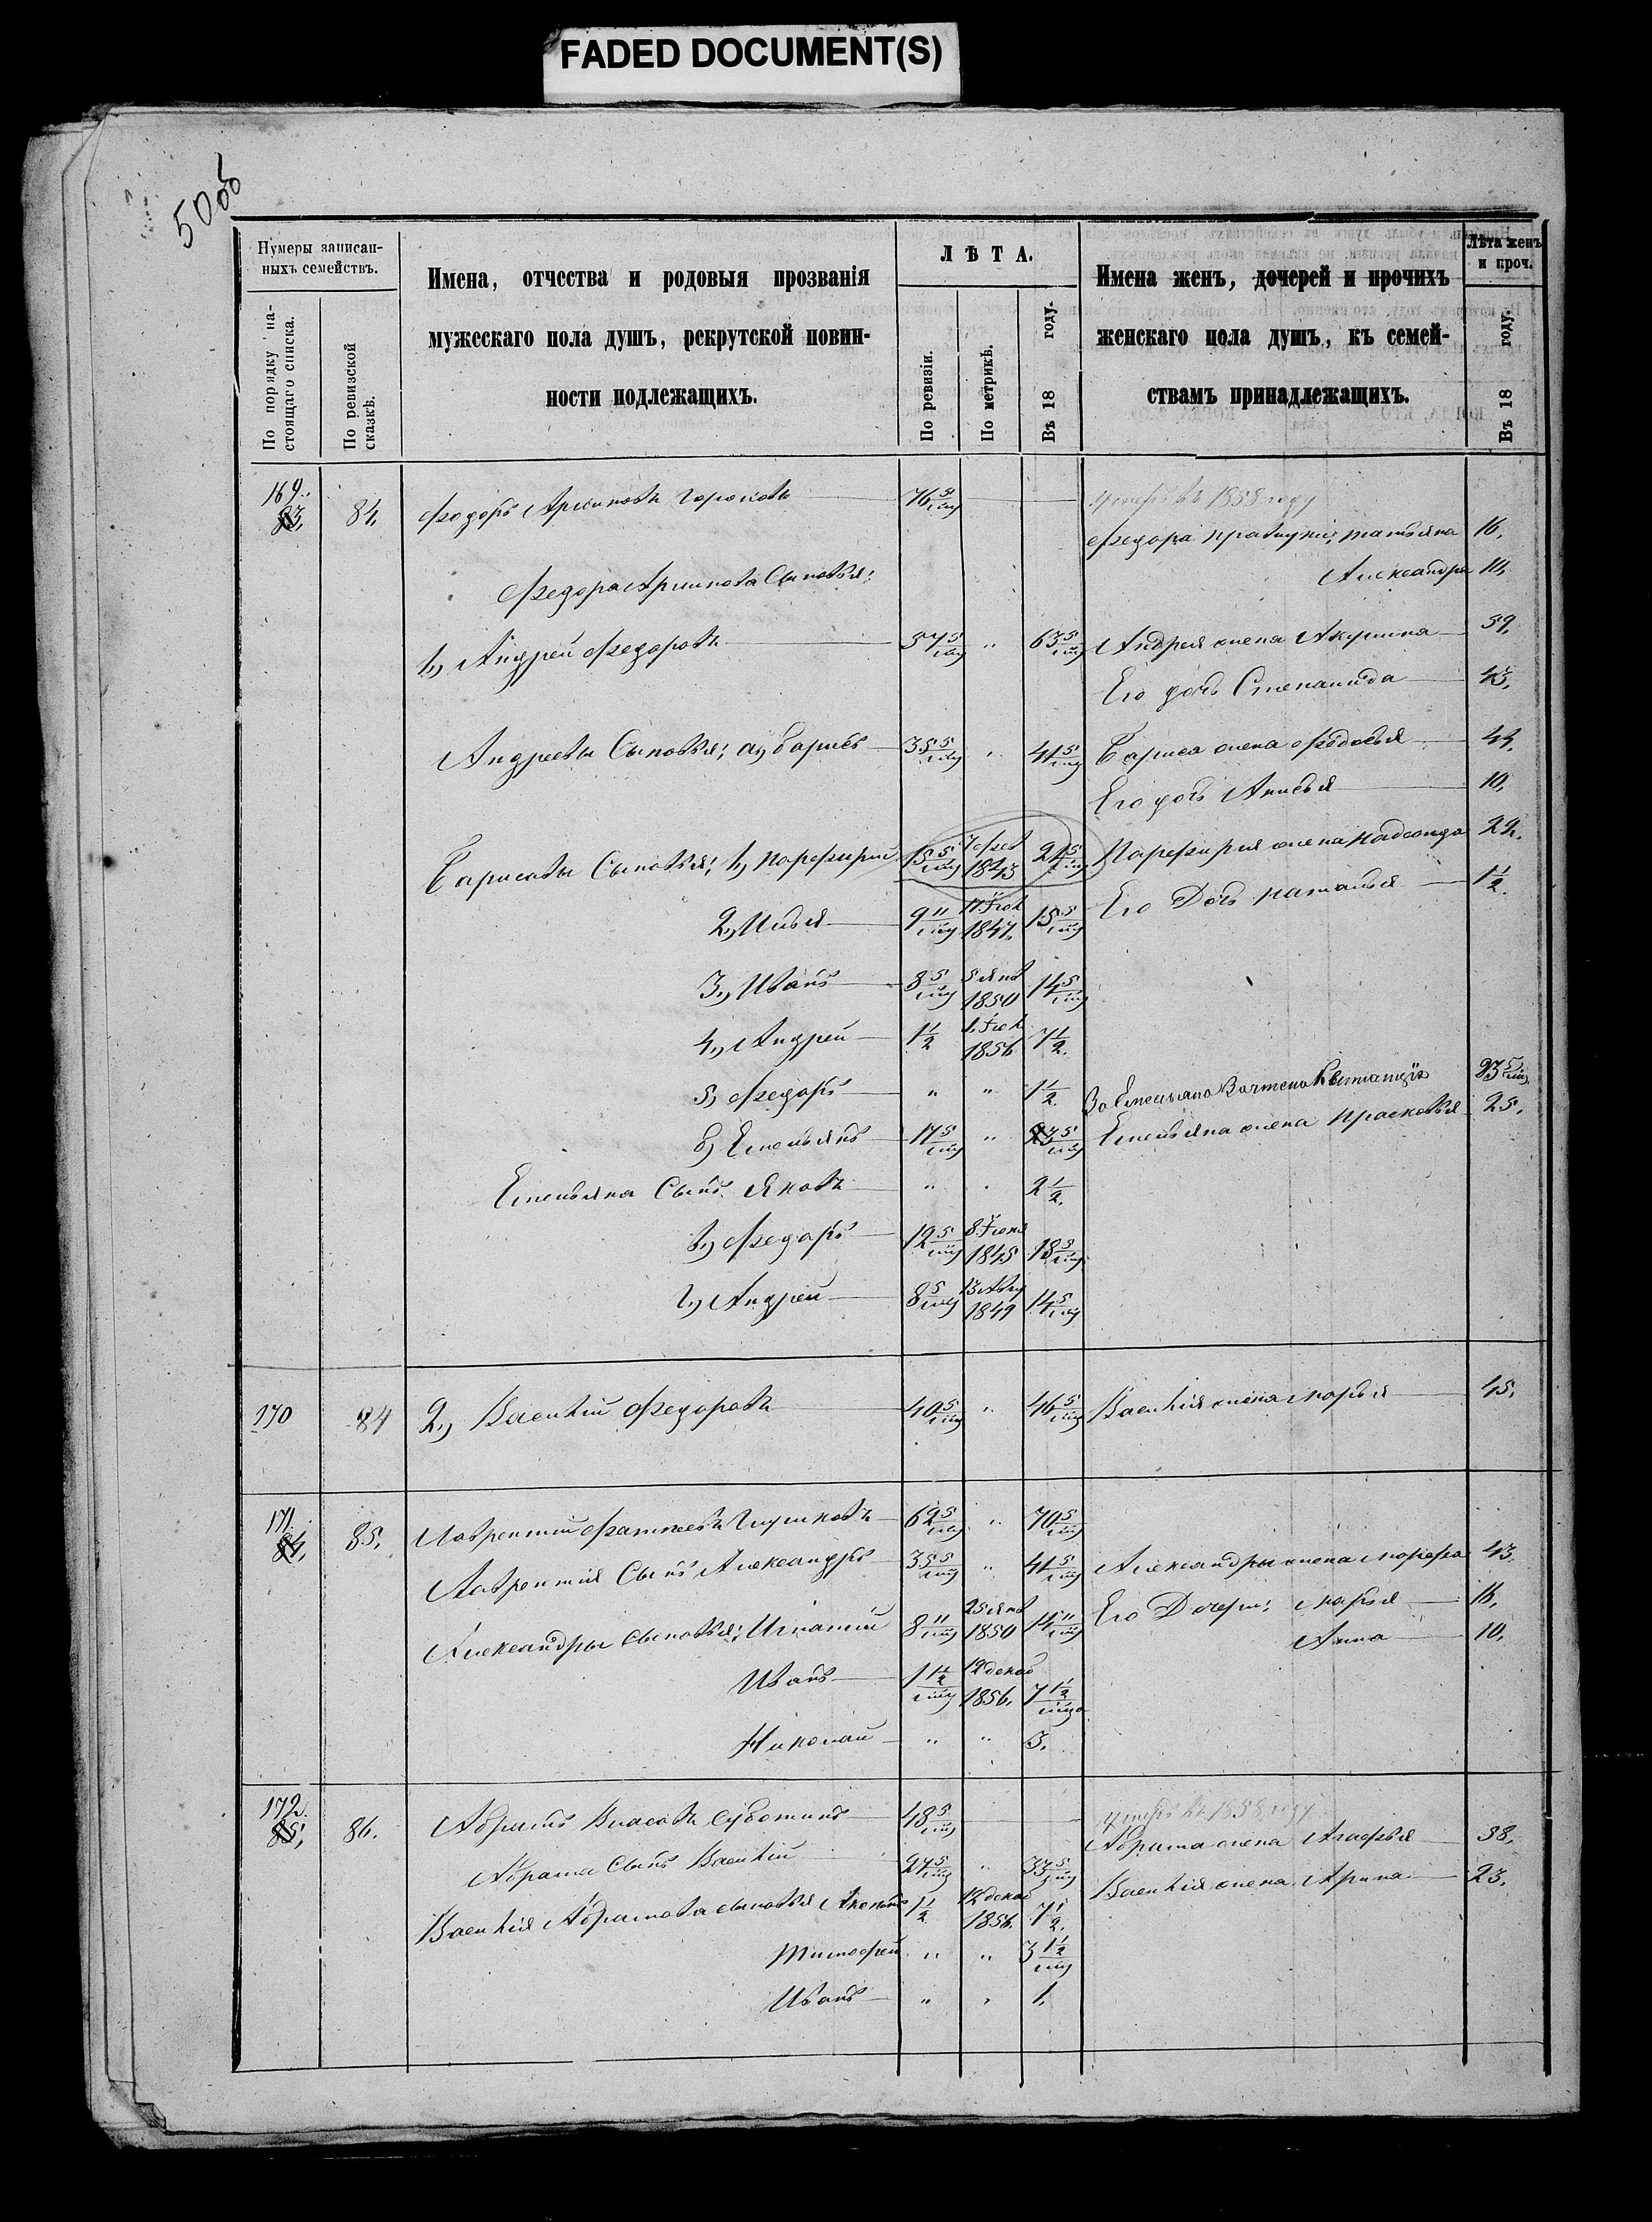 FADED DOCUMENT(S)
50об
Нумеры записан-
ныхъ семействъ.
По порядку на-
стоящаго списка.
По ревизской
сказкѣ.
Имена, отчества и родовыя прозванія
мужескаго пола душъ, рекрутской повин-
ности подлежащихъ.
ЛѢТА.
По ревизіи.
По метрикѣ.
Въ 18 году.
Имена женъ, дочерей и прочихъ
женскаго пола душъ, къ семей-
ствамъ принадлежащихъ.
Лѣта женъ
и проч.
Въ 18 году.
169. 84. Федоръ Архиповъ 76 5/мц 1858 году
83,
Федора татьяна 16,
Федора Архипова Сыновья: Александра 10,
1, Андрей Федоровъ 57 5/мц " 63 5/мц Андрея жена Акулина 59,
Его дочь Степанида 43,
Андреевы Сыновья; а, борисъ 35 5/мц " 41 5/мц Бориса жена Федосья 44,
Его дочь Анисья 10,
Борисовы Сыновья; 1, порфирий 15 5/мц 7 фев 1843 21 5/мц Порфирия жена 22.
Его Дочь наталья 1 1/2.
2, Илья 9 11/мц 1847. 15 5/мц
3, Иванъ 8 5/мц 5 янв 1850 14 5/мц
4, Андрей 1 1/2 1856 7 1/2.
5, Федоръ " " 1 1/2. За Емельяна Зачтена Квитанція 23 5/мц
б, Емельянъ 17 5/мц " 23 5/мц Емельяна жена прасковья 25.
Емельяна Сынъ Яковъ " " 2 1/2.
в, Федоръ 12 5/мц 1845 18 5/мц
г, Андрей 8 5/мц 13 Авгу 1849 14 5/мц
170 84 2, Василий Федоровъ 40 5/мц " 46 5/мц Василия жена марья 45.
171. 85. Лаврентий 62 5/мц " 70 5/мц
84,
Лаврентия Сынъ Александръ 35 5/мц " 41 5/мц Александры жена 43.
Александры сыновья: Игнатий 8 11/мц 25 янв 1850 14 11/мц Его Дочери: марья 16,
Анна 10.
Иванъ 1 1/2 мц 12 декаб 1856. 7 1/2 мца
Николай " " 3.
172. 86. Абрамъ Власовъ Суботинъ 48 5/мц 1858 году
85,
Абрама жена Агафья 38.
Абрама Сынъ Василий 27 5/мц " 33 5/мц Василия жена Арина 23.
Василия Абрамова сыновья 1 1/2 12 декаб 1856. 7 1/2.
Тимофей " " 3 1/2 мц
Иванъ " " 1.